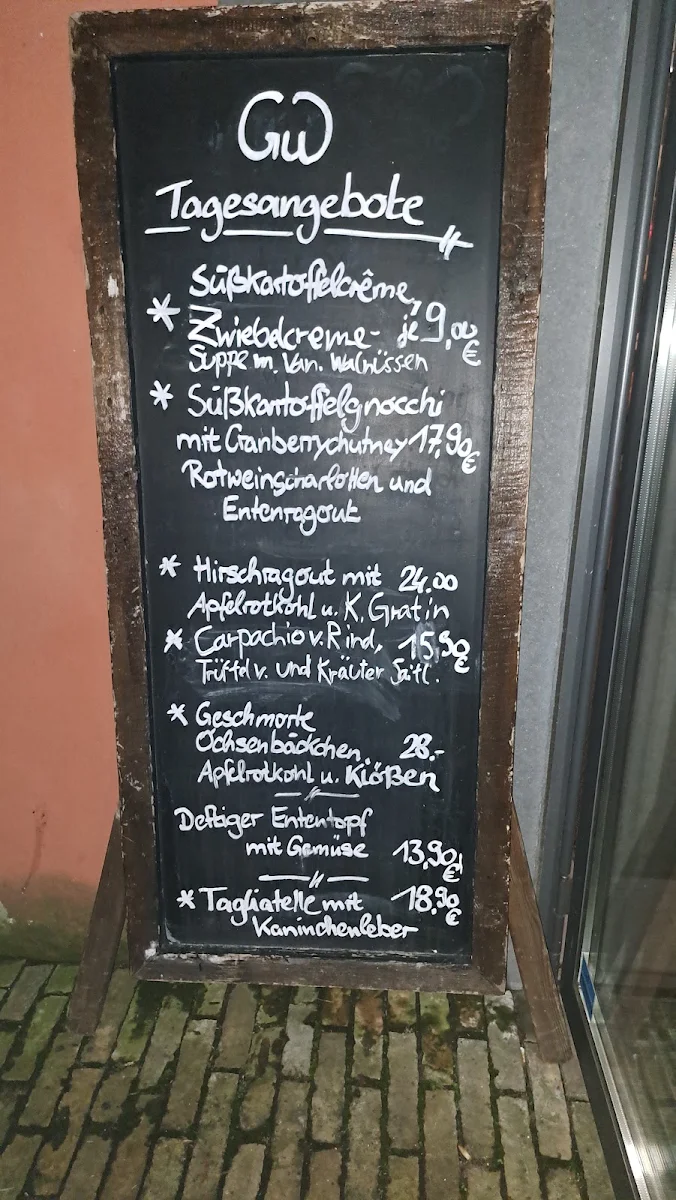 GW
Tagesangebote
Süßkartoffelcrême,
* Zwiebelcreme- je 9,00 €
Suppe m. Van. Walnüssen
* Süßkartoffelgnocchi
mit Cranberrychutney 17,90 €
Rotweinscharlotten und
Entenragout
* Hirschragout mit 24.00
Apfelrotkohl u. K. Gratin
* Carpachio v. Rind, 15,90 €
Trüffel v. und Kräuter Saitl.
* Geschmorte
Ochsenbäckchen, 28.-
Apfelrotkohl u. Klößen
Deftiger Ententopf
mit Gemüse 13,90 €
* Tagliatelle mit 18,90 €
Kaninchenleber